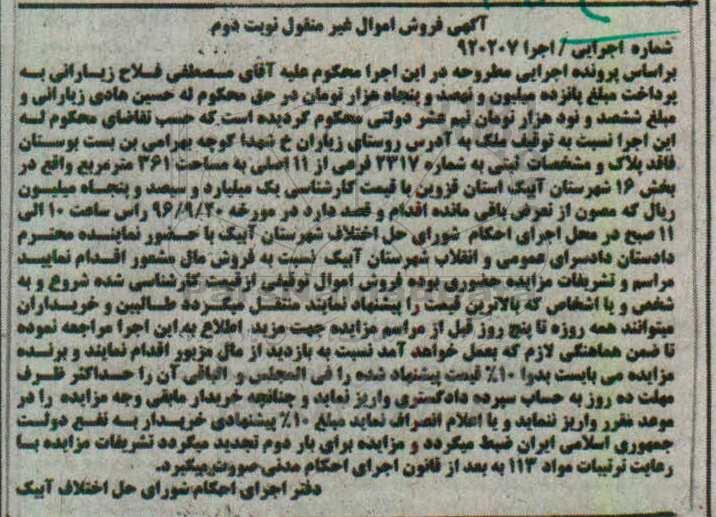 آگهی فروش اموال غیر منقول نوبت دوم
شماره اجرایی / اجرا ۹۲۰۲۰۷
براساس پرونده اجرایی مطروحه در این اجرا محکوم علیه آقای مصطفی فلاح زیارانی به
پرداخت مبلغ پانزده میلیون و نهصد و پنجاه هزار تومان در حق محکوم له حسین هادی زیارانی و
مبلغ ششصد و نود هزار تومان نیم عشر دولتی محکوم گردیده است که حسب تقاضای محکوم له
این اجرا نسبت به توقیف ملک به آدرس روستای زیاران خ شهدا کوچه بهرامی بن بست بوستان
فاقد پلاک و مشخصات ثبتی به شماره ۲۳۱۷ فرعی از ۱۱ اصلی به مساحت ۳۶۱ مترمربع واقع در
بخش ۱۶ شهرستان آبیک استان قزوین با قیمت کارشناسی یک میلیارد و سیصد و پنجاه میلیون
ریال که مصون از تعرض باقی مانده اقدام و قصد دارد در مورخه ۹۶/۹/۲۰ راس ساعت ۱۰ الی
۱۱ صبح در محل اجرای احکام شورای حل اختلاف شهرستان آبیک با حضور نماینده محترم
دادستان دادسرای عمومی و انقلاب شهرستان آبیک نسبت به فروش مال مشعور اقدام نمایید
مراسم و تشریفات مزایده حضوری بوده فروش اموال توقیفی از قیمت کارشناسی شده شروع و به
شخص و یا اشخاص که بالاترین قیمت را پیشنهاد نمایند منتقل میگردد طالبین و خریداران
میتوانند همه روزه تا پنج روز قبل از مراسم مزایده جهت مزید اطلاع به این اجرا مراجعه نموده
تا ضمن هماهنگی لازم که بعمل خواهد آمد نسبت به بازدید از مال مزبور اقدام نمایند و برنده
مزایده می بایست بدوا ۱۰٪ قیمت پیشنهاد شده را فی المجلس و الباقی آن را حداکثر ظرف
مهلت ده روز به حساب سپرده دادگستری واریز نماید و چنانچه خریدار مابقی وجه مزایده را در
موعد مقرر واریز ننماید و یا اعلام انصراف نماید مبلغ ۱۰٪ پیشنهادی خریدار به نفع دولت
جمهوری اسلامی ایران ضبط میگردد و مزایده برای بار دوم تجدید میگردد تشریفات مزایده با
رعایت ترتیبات مواد ۱۱۳ به بعد از قانون اجرای احکام مدنی صورت میگیرد.
دفتر اجرای احکام شورای حل اختلاف آبیک